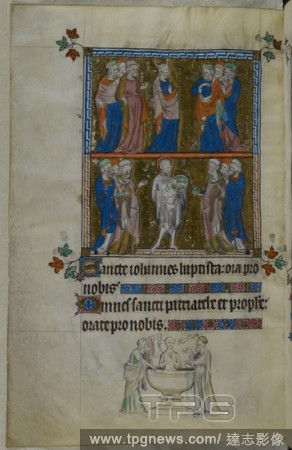 Sancte iohannes baptista: ora pro
nobis
Omnes sancti patriarche et prophete:
orate pro nobis.
TPG
www.tpgnews.com/ 達志影像